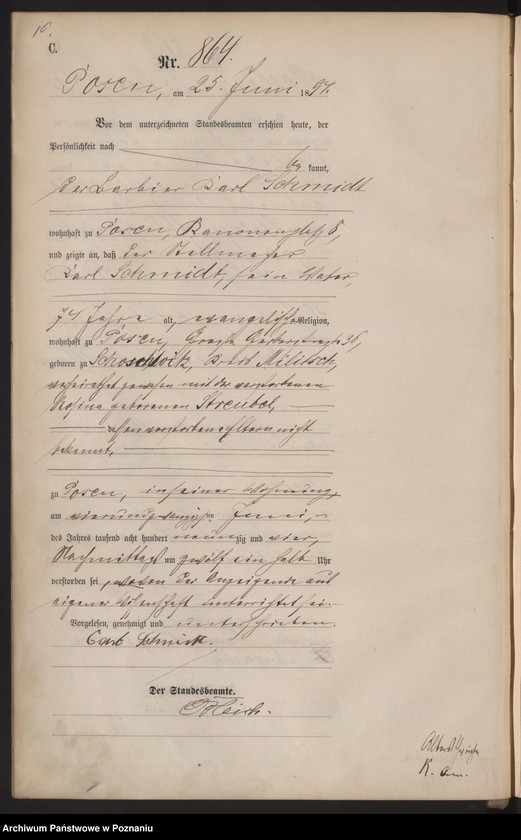 16.
C.
Nr. 864.
Posen, am 25. Juni 1894.
Vor dem unterzeichneten Standesbeamten erschien heute, der
Persönlichkeit nach
be kannt,
der Barbier Karl Schmidt
wohnhaft zu Posen, Kanonenplatz
und zeigte an, daß der Stellmacher
Karl Schmidt, sein Vater,
74 Jahre alt, evangelischer Religion,
wohnhaft zu Posen, Große Gerberstraße 36,
geboren zu Kreis Militsch,
verheirathet gewesen mit der verstorbenen
Rosina geborenen Streubel,
dessen verstorbene Eltern nicht
bekannt,
zu Posen, in seiner Wohnung,
am vierundzwanzigsten Juni,
des Jahres tausend acht hundert neunzig und vier,
Nachmittags um zwölf ein halb Uhr
verstorben sei, wovon der Anzeigende aus
eigener Wissenschaft unterrichtet sei.
Vorgelesen, genehmigt und unterschrieben.
Carl Schmidt.
Der Standesbeamte.
Albert
K.
Archiwum Państwowe w Poznaniu